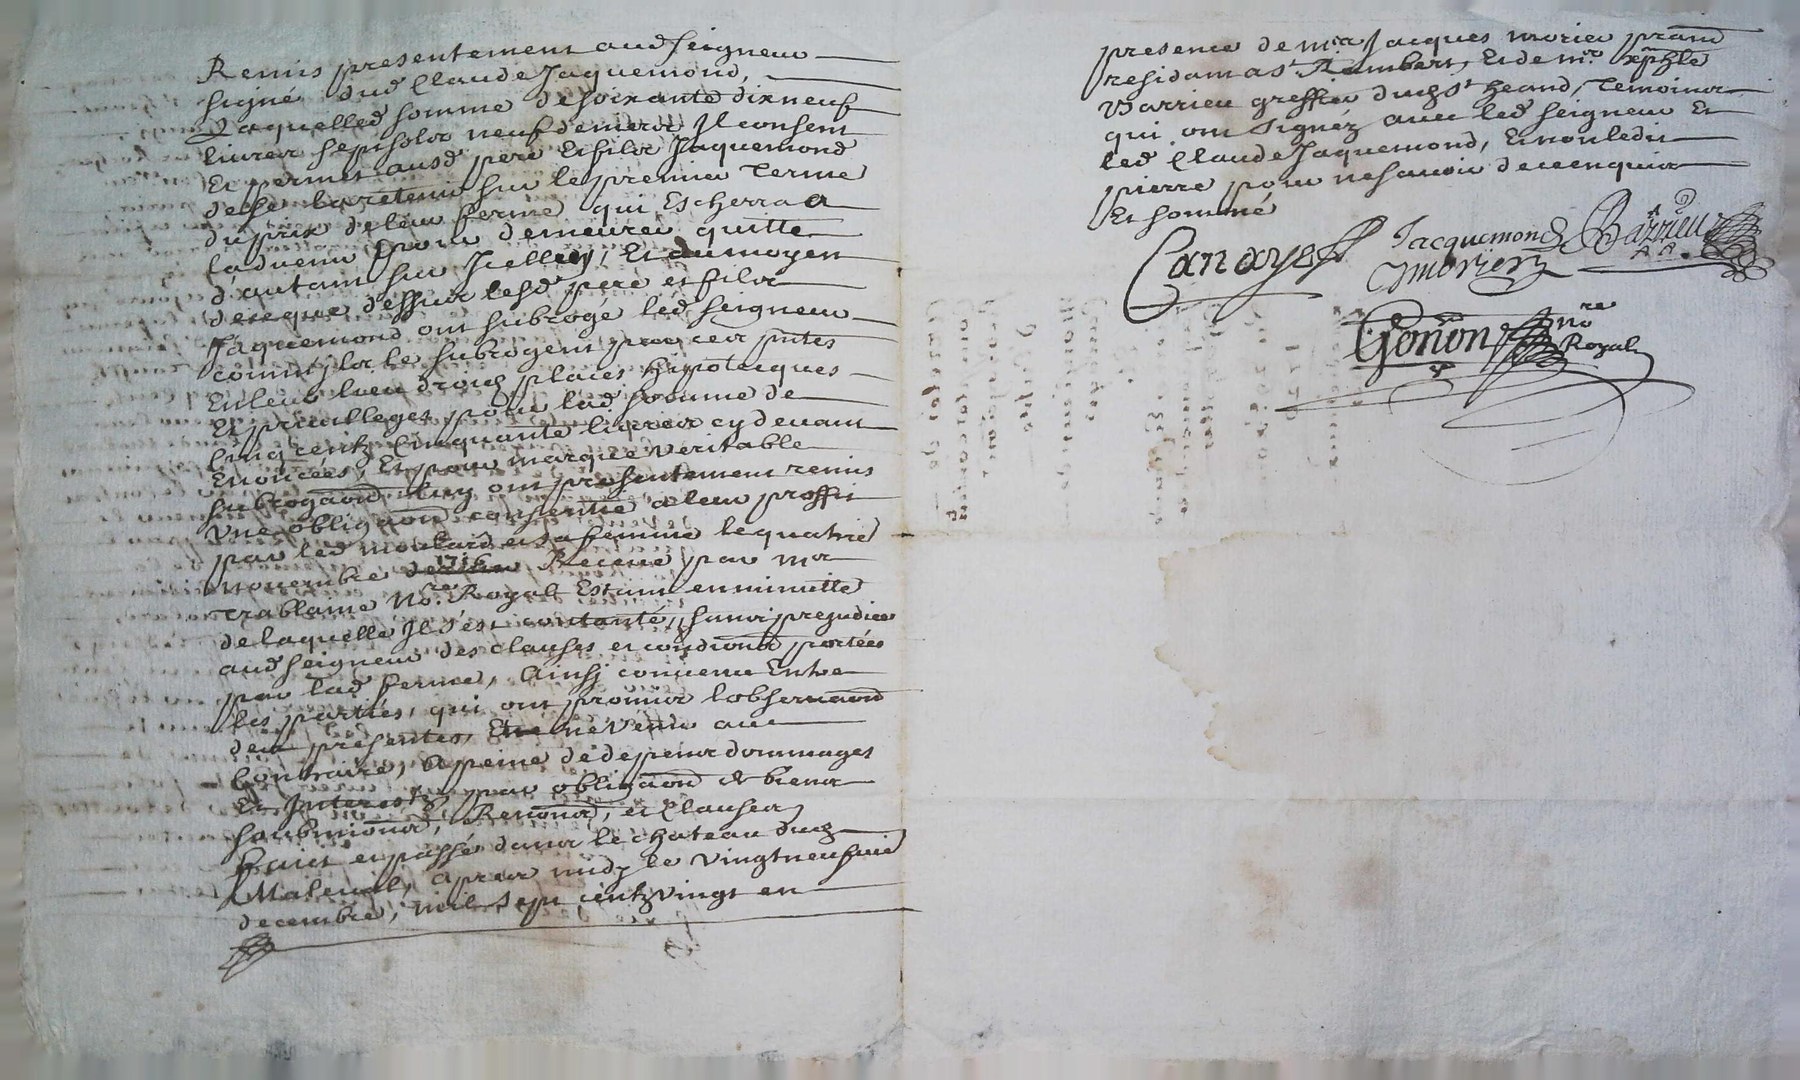 Remis presentement aud seigneur
signé dud Claude Jaquemond,
Laquelled somme de soixante dix neuf
livres sept solz neuf deniers Il consent
Et permet ausd pere et filz Jaquemond
de se la retenir sur le premier Terme
du prix de leur ferme qui Escherra a
ladvenir pour demeurer quitte
d'autant sur Icelluy, Et au moyen
de ce que dessus lesd pere et filz
Jaquemond ont subrogé led seigneur
comm'ilz le subrogent par ces pntes
En leur lieu droictz places hipoteques
Et privilleges pour lad somme de
Cinq centz Cinquante livres cy devant
Enoncées, Et pour marque veritable
subrogaôn luy ont presentement remis
Une obligaôn consentie a leur proffit
par led moulard et sa femme le quatrie
novembre 1716 Receue par mr
Trablaine No.re Royal Estant en minutte
de laquelle Il s'est contanté, sans prejudice
aud seigneur des clauses et condions portées
par lad ferme, Ainsy convenu Entre
les parties, qui ont promis lobservaôn
des presentes, Et ne venir au
Contraire, A peine de depens dommages
Et Interestz par obligaôn de biens
soubmions, Renons, et Clauses
faict et passé dans le chateau dudt
Maleval, apres midy le vingtneufvie
decembre, mil sept centz vingt en
presence de mr Jacques morier prand
residant a st Rambert, Et de mr. xphle
Barrieu greffier dudt st heand, Temoins
qui ont signéz avec led seigneur Et
led Claude Jaquemond, Et non ledit
pierre pour ne scavoir de ce enquis
Et sommé
Canaye
Jacquemond
Barrieu
morier
Gonon no.re Royal